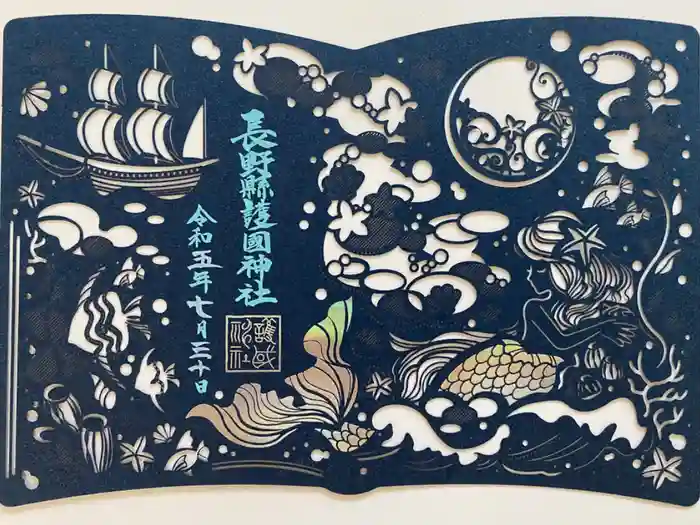 長野縣護國神社
令和五年七月三十日
護国神社